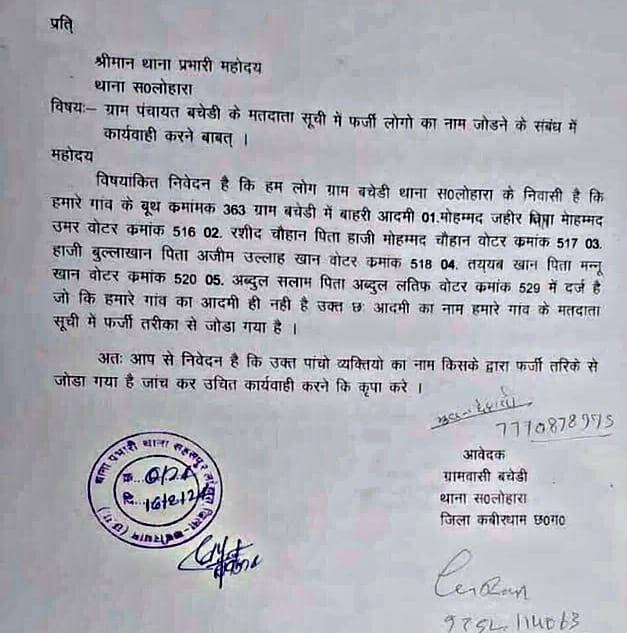 प्रति
श्रीमान थाना प्रभारी महोदय
थाना स0लोहारा
विषयः– ग्राम पंचायत बचेडी के मतदाता सूची में फर्जी लोगो का नाम जोडने के संबंध में
कार्यवाही करने बाबत् ।
महोदय
विषयांकित निवेदन है कि हम लोग ग्राम बचेडी थाना स0लोहारा के निवासी है कि
हमारे गांव के बूथ कमांमक 363 ग्राम बचेडी में बाहरी आदमी 01.मोहम्मद जहीर पिता मोहम्मद
उमर वोटर कमांक 516 02. रशीद चौहान पिता हाजी मोहम्मद चौहान वोटर कमांक 517 03.
हाजी बुल्लाखान पिता अजीम उल्लाह खान वोटर कमांक 518 04. तय्यब खान पिता मन्नू
खान वोटर कमांक 520 05. अब्दुल सलाम पिता अब्दुल लतिफ वोटर कमांक 529 में दर्ज है
जो कि हमारे गांव का आदमी ही नही है उक्त छः आदमी का नाम हमारे गांव के मतदाता
सूची में फर्जी तरीका से जोडा गया है ।
अतः आप से निवेदन है कि उक्त पांचो व्यक्तियो का नाम किसके द्वारा फर्जी तरिके से
जोडा गया है जांच कर उचित कार्यवाही करने कि कृपा करे ।
7770878975
आवेदक
ग्रामवासी बचेडी
थाना स0लोहारा
जिला कबीरधाम छ0ग0
थाना प्रभारी थाना सहसपुर लोहारा जिला-कबीरधाम (छ.ग.)